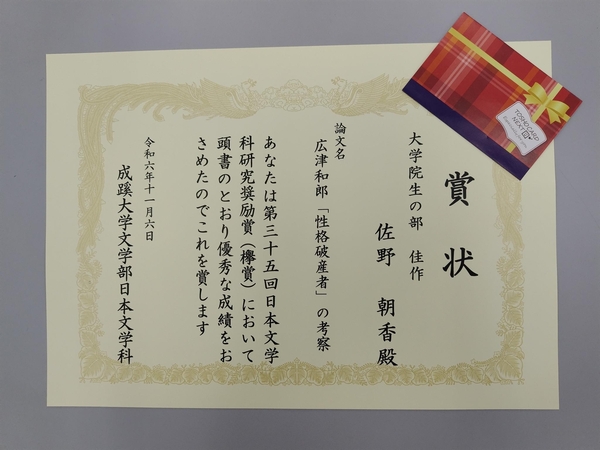 賞状
大学院生の部 佳作
佐野 朝香 殿
論文名
広津和郎「性格破産者」の考察
あなたは第三十五回日本文学
科研究奨励賞(欅賞)において
頭書のとおり優秀な成績をお
さめたのでこれを賞します
令和六年十一月六日
成蹊大学文学部日本文学科
TOSHOCARD
NEXT